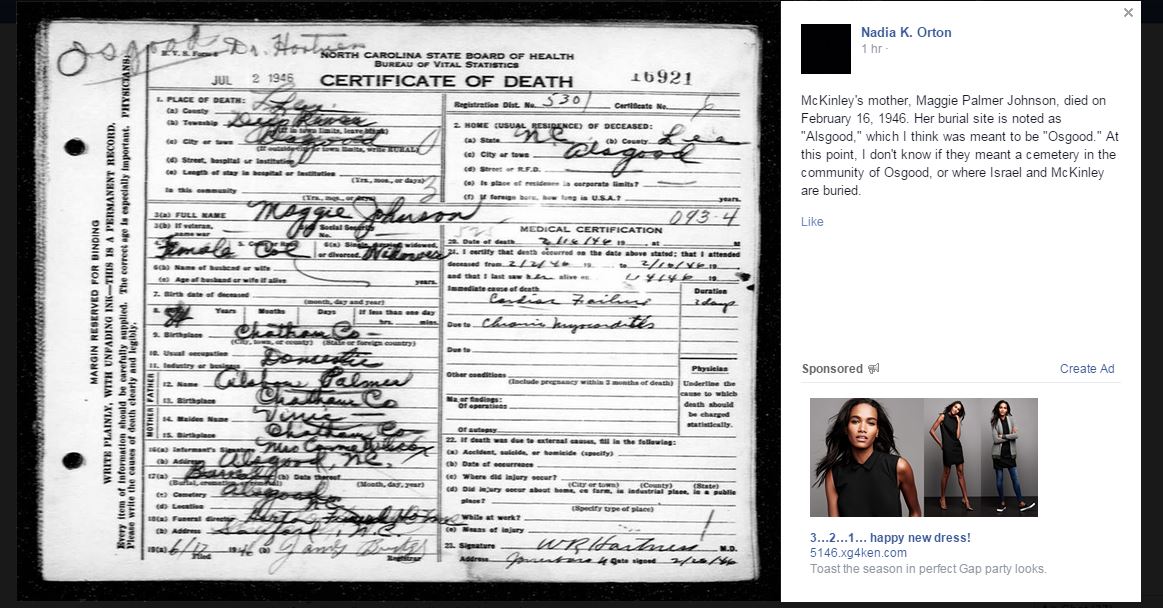 Osgood Dr. Hartness
NORTH CAROLINA STATE BOARD OF HEALTH
BUREAU OF VITAL STATISTICS
JUL 2 1946 CERTIFICATE OF DEATH 16921
MARGIN RESERVED FOR BINDING
WRITE PLAINLY, WITH UNFADING INK—THIS IS A PERMANENT RECORD.
Every item of information should be carefully supplied. The correct age is especially important. PHYSICIANS:
Please write the causes of death clearly and legibly.
1. PLACE OF DEATH:
(a) County Lee
(b) Township Deep River
(If in town limits, leave blank)
(c) City or town Osgood
(If outside city or town limits, write RURAL)
(d) Street, hospital or institution
(e) Length of stay in hospital or institution
(Yrs., mos., or days)
In this community
(Yrs., mos., or days)
Registration Dist. No. 5301 Certificate No. 6
2. HOME (USUAL RESIDENCE) OF DECEASED:
(a) State NC (b) County Lee
(c) City or town Alsgood
(d) Street or R.F.D.
(e) Is place of residence in corporate limits?
(f) If foreign born, how long in U.S.A.? years.
3(a) FULL NAME Maggie Johnson 093-4
3(b) If veteran, name war
Social Security No.
4. Female 5. Color or Race Col 6(a) Single, married, widowed, or divorced. Widowed
6(b) Name of husband or wife
(c) Age of husband or wife if alive years.
7. Birth date of deceased
(month, day and year)
8. Years Months Days If less than one day
hrs. min.
9. Birthplace Chatham Co
(City, town, or county) (State or foreign country)
10. Usual occupation Domestic
11. Industry or business
FATHER
12. Name Palmer
13. Birthplace Chatham Co
MOTHER
14. Maiden Name
15. Birthplace Chatham Co
16(a) Informant's Signature Mrs
(b) Address Alsgood, N.C.
17(a) Burial (b) Date thereof
(Burial, cremation, or removal) (Month, day, year)
(c) Cemetery Alsgood
(d) Location
18(a) Funeral director Funeral Home
(b) Address Sanford, N.C.
19(a) 6/17 1946 (b)
Filed Registrar
MEDICAL CERTIFICATION
20. Date of death 2/16/46 19 , at M
21. I certify that death occurred on the date above stated; that I attended
deceased from 2/2/46 19 to 2/16/46 19
and that I last saw her alive on
Immediate cause of death Duration
Cardiac Failure 2 days
Due to Chronic Myocarditis
Due to
Other conditions
(Include pregnancy within 3 months of death)
Major findings:
Of operations
Of autopsy
Physician
Underline the cause to which death should be charged statistically.
22. If death was due to external causes, fill in the following:
(a) Accident, suicide, or homicide (specify)
(b) Date of occurrence
(c) Where did injury occur?
(City or town) (County) (State)
(d) Did injury occur about home, on farm, in industrial place, in a public
place?
(Specify type of place)
While at work?
(e) Means of injury
23. Signature W R Hartness M.D.
Address Jonesboro Date signed
Nadia K. Orton
1 hr ·
McKinley's mother, Maggie Palmer Johnson, died on
February 16, 1946. Her burial site is noted as
"Alsgood," which I think was meant to be "Osgood." At
this point, I don't know if they meant a cemetery in the
community of Osgood, or where Israel and McKinley
are buried.
Like
Sponsored Create Ad
3…2…1… happy new dress!
5146.xg4ken.com
Toast the season in perfect Gap party looks.